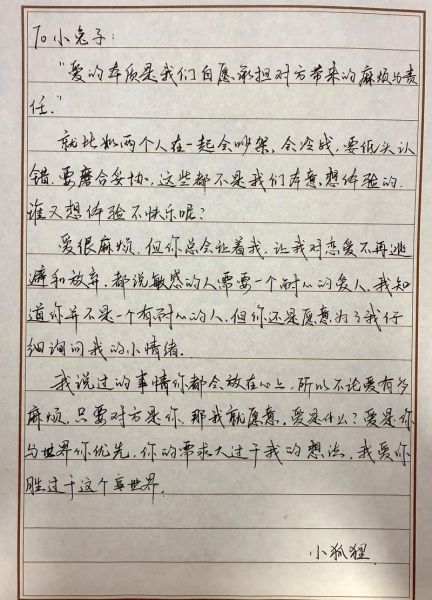 To 小兔子:
"爱的本质是我们自愿承担对方带来的麻烦与责
任."
就比如两个人在一起会吵架,会冷战,要低头认
错,要磨合妥协,这些都不是我们本意想体验的,
谁又想体验不快乐呢?
爱很麻烦,但你总会让着我,让我对恋爱不再逃
避和放弃.都说敏感的人需要一个耐心的爱人,我知
道你并不是一个有耐心的人,但你还是愿意为了我仔
细询问我的小情绪.
我说过的事情你都会放在心上,所以不论爱有多
麻烦,只要对方是你,那我就愿意.爱是什么?爱是你
与世界你优先,你的需求大过于我的想法,我爱你
胜过于这个世界.
小狐狸.